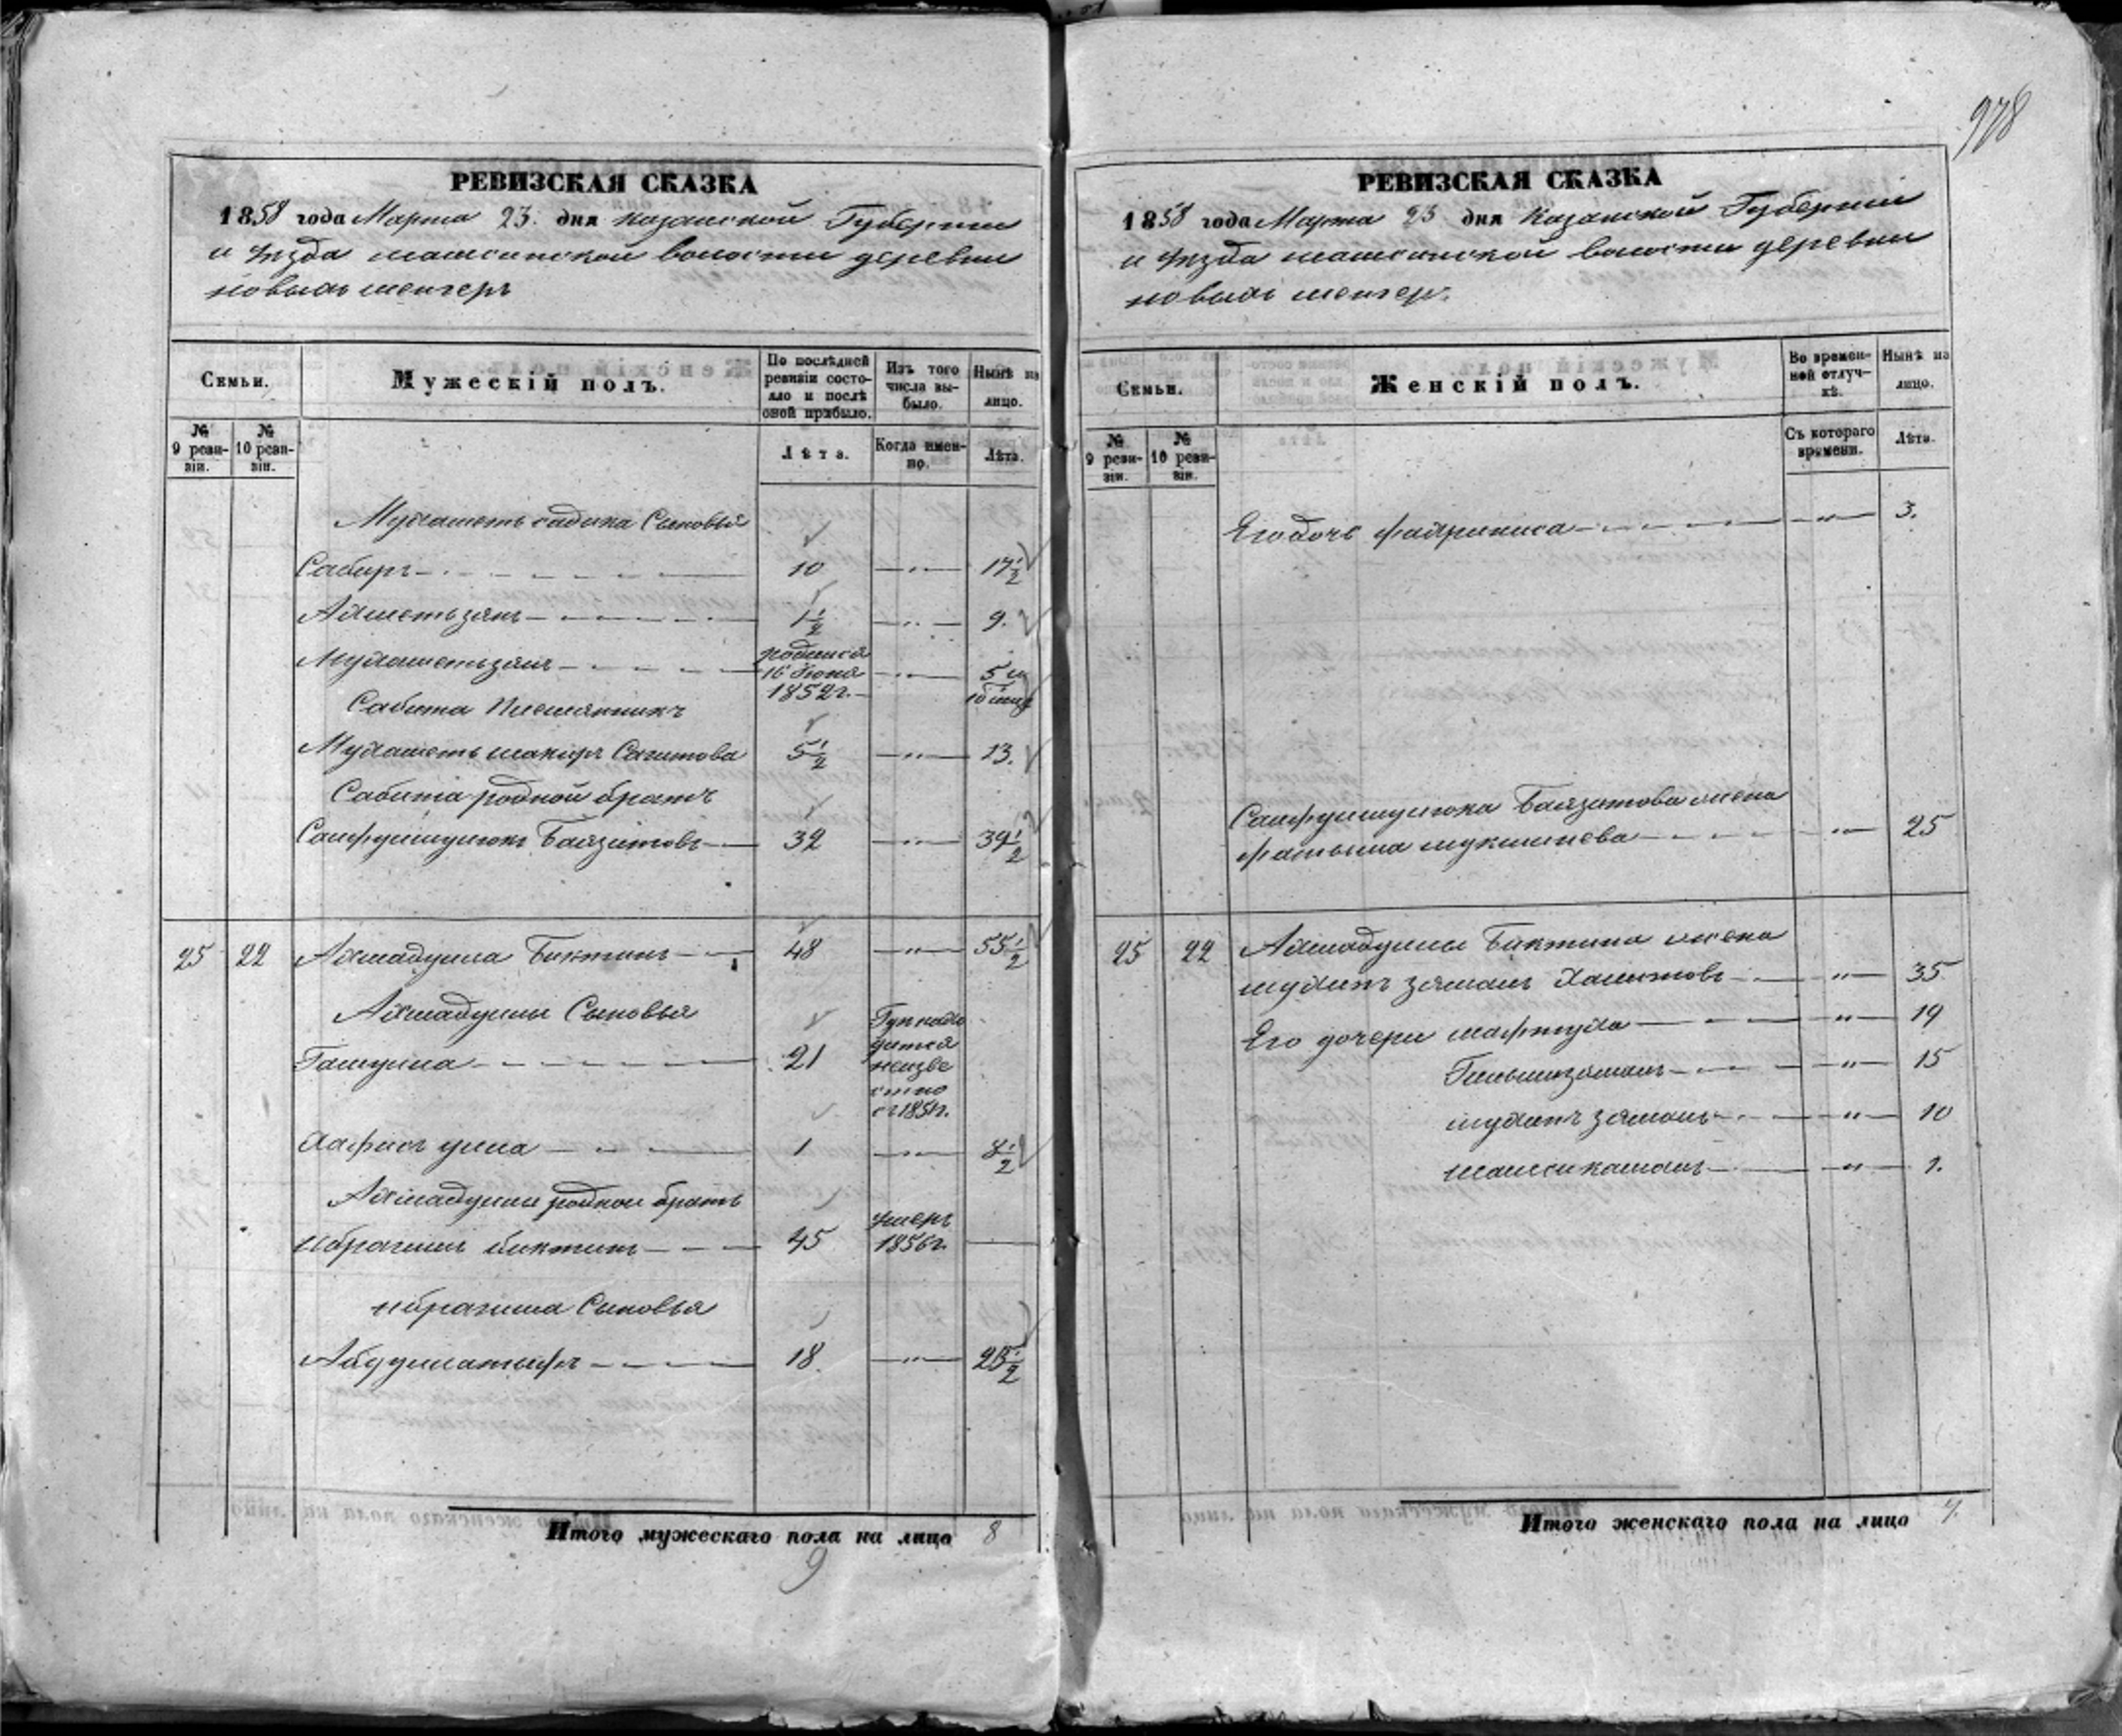 978
РЕВИЗСКАЯ СКАЗКА
1858 года Марта 23. дня Казанской Губернии
и Уезда машинской волости деревни
новыхъ менгеръ
Семьи.
Мужескій полъ.
По послѣдней ревизіи состояло и послѣ оной прибыло.
Изъ того числа выбыло.
Нынѣ на лицо.
№ 9 ревизіи.
№ 10 ревизіи.
Лѣта.
Когда именно.
Лѣта.
Мухаметь садика Сыновья
Сабиръ 10 — " — 17½
Ахметьзянъ 1½ — " — 9.
Мухаметьзянъ родился 16 Іюня 1852 г. — " — 5 и
Сабита Племянникъ
Мухаметь шакиръ Сагитовъ 5½ — " — 13.
Сабита родной братъ
Баязитовъ 32 — " — 39½
25 22 Ахмадулла Биктинъ 48 — " — 55½
Ахмадуллы Сыновья
21 неизвестно съ 1851 г.
Хафисъ улла 1 — " — 8½
Ахмадуллы родной братъ
Ибрагимъ биктинъ 45 умеръ 1856 г. —
ибрагима Сыновья
Абдуллатыфъ 18. — " — 25½
Итого мужескаго пола на лицо 8
9
РЕВИЗСКАЯ СКАЗКА
1858 года Марта 23 дня Казанской Губерніи
и Уезда машинской волости деревни
новыхъ менгеръ.
Семьи.
Женскій полъ.
Во временной отлучкѣ.
Нынѣ на лицо.
№ 9 ревизіи.
№ 10 ревизіи.
Съ котораго времени.
Лѣта.
Его дочь — " — 3.
Баязитова жена
— " — 25
25 22 Ахмадуллы Биктина жена
— " — 35.
Его дочери мафтуха — " — 19
— " — 15
— " — 10
— " — 1.
Итого женскаго пола на лицо 7.